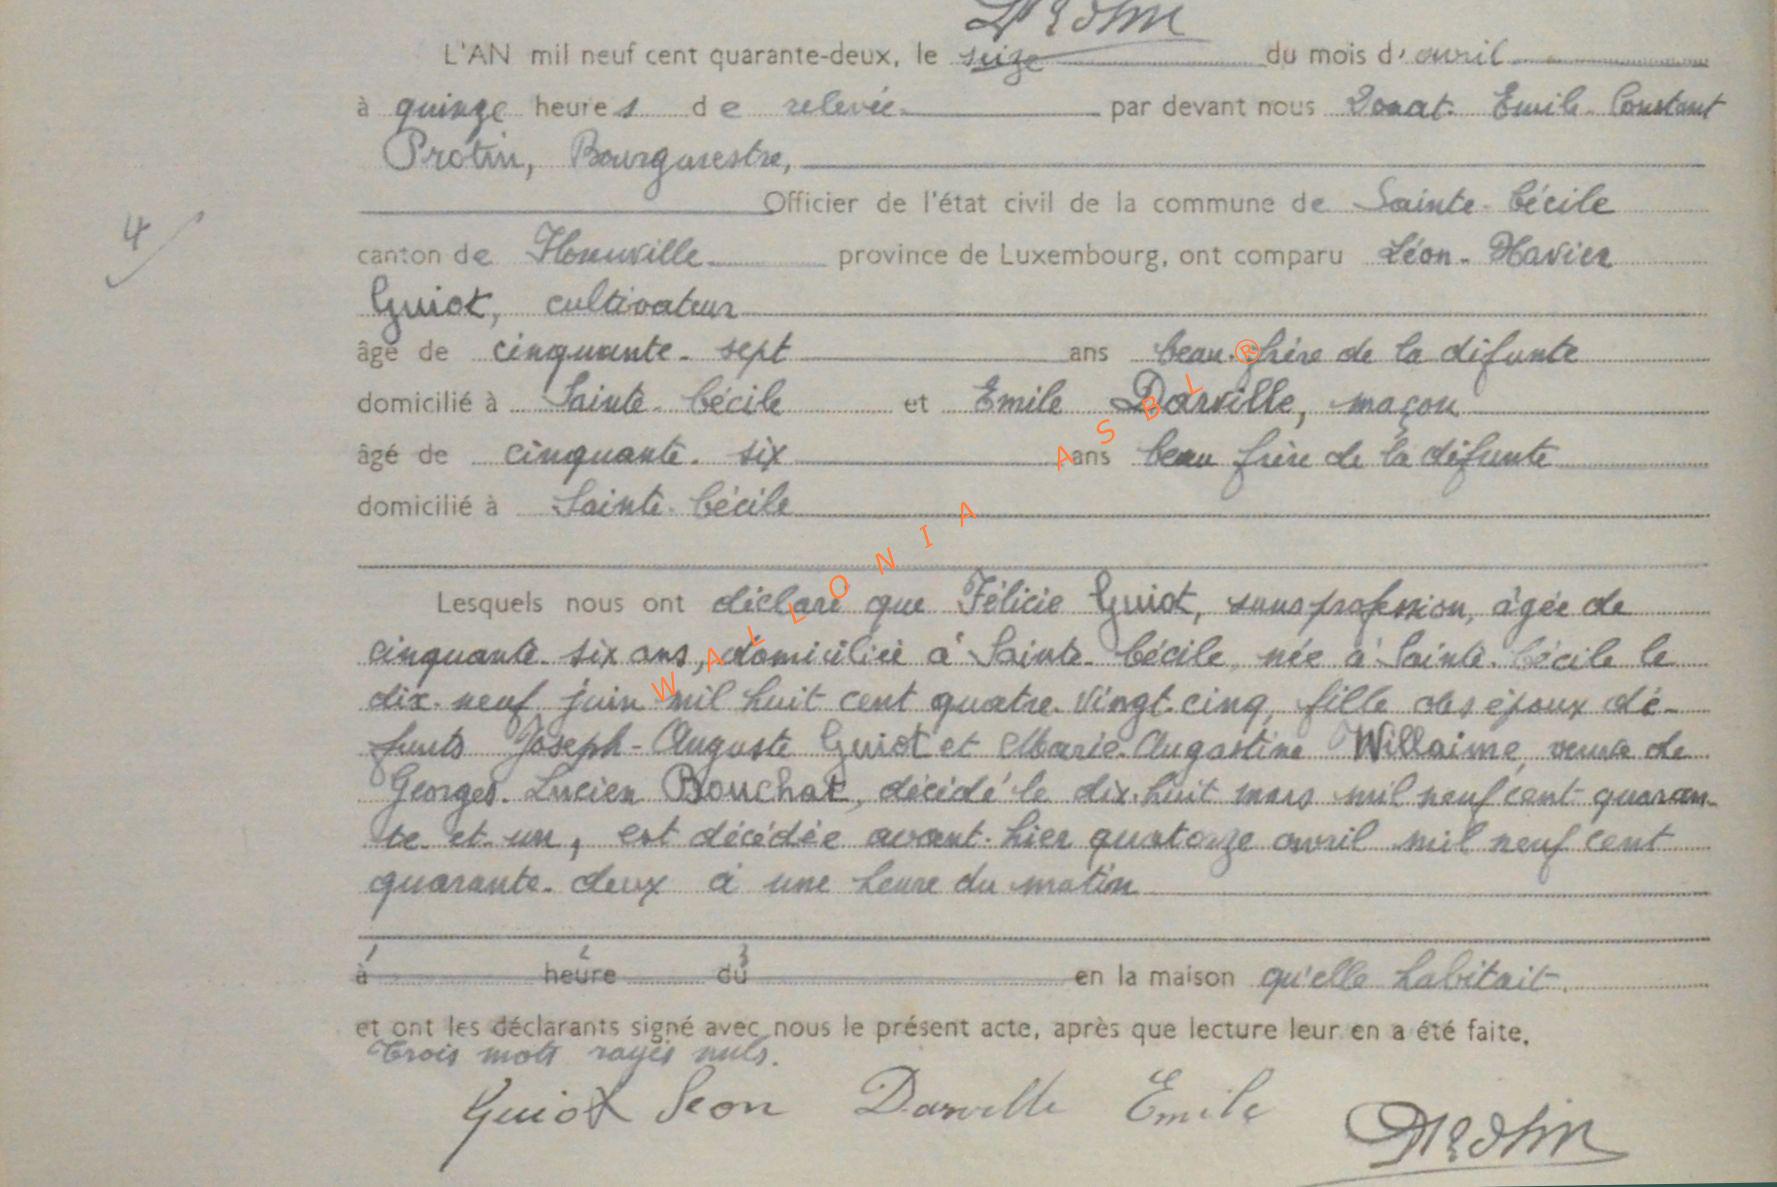 Protin
L'AN mil neuf cent quarante-deux, le seize du mois d'avril
à quinze heures de relevée par devant nous Donat-Emile-Constant
Protin, Bourgmestre,
Officier de l'état civil de la commune de Sainte-Cécile
4
canton de Florenville province de Luxembourg, ont comparu Léon-Xavier
Guiot, cultivateur
âgé de cinquante-sept ans beau-frère de la défunte
domicilié à Sainte-Cécile et Emile Darville, maçon
âgé de cinquante-six ans beau frère de la défunte
domicilié à Sainte-Cécile
Lesquels nous ont déclaré que Félicie Guiot, sans profession, âgée de
cinquante-six ans, domiciliée à Sainte-Cécile, née à Sainte-Cécile le
dix-neuf juin mil huit cent quatre-vingt-cinq, fille des époux dé-
funts Joseph-Auguste Guiot et Marie-Augustine Willaime, veuve de
Georges-Lucien Bouchat, décédé le dix-huit mars mil neuf cent quaran-
te-et-un, est décédée avant-hier quatorze avril mil neuf cent
quarante-deux à une heure du matin
1 2 3
à heure du en la maison qu'elle habitait.
et ont les déclarants signé avec nous le présent acte, après que lecture leur en a été faite.
Trois mots rayés nuls.
Guiot Leon Darville Emile Protin
WALLONIA ASBL ®